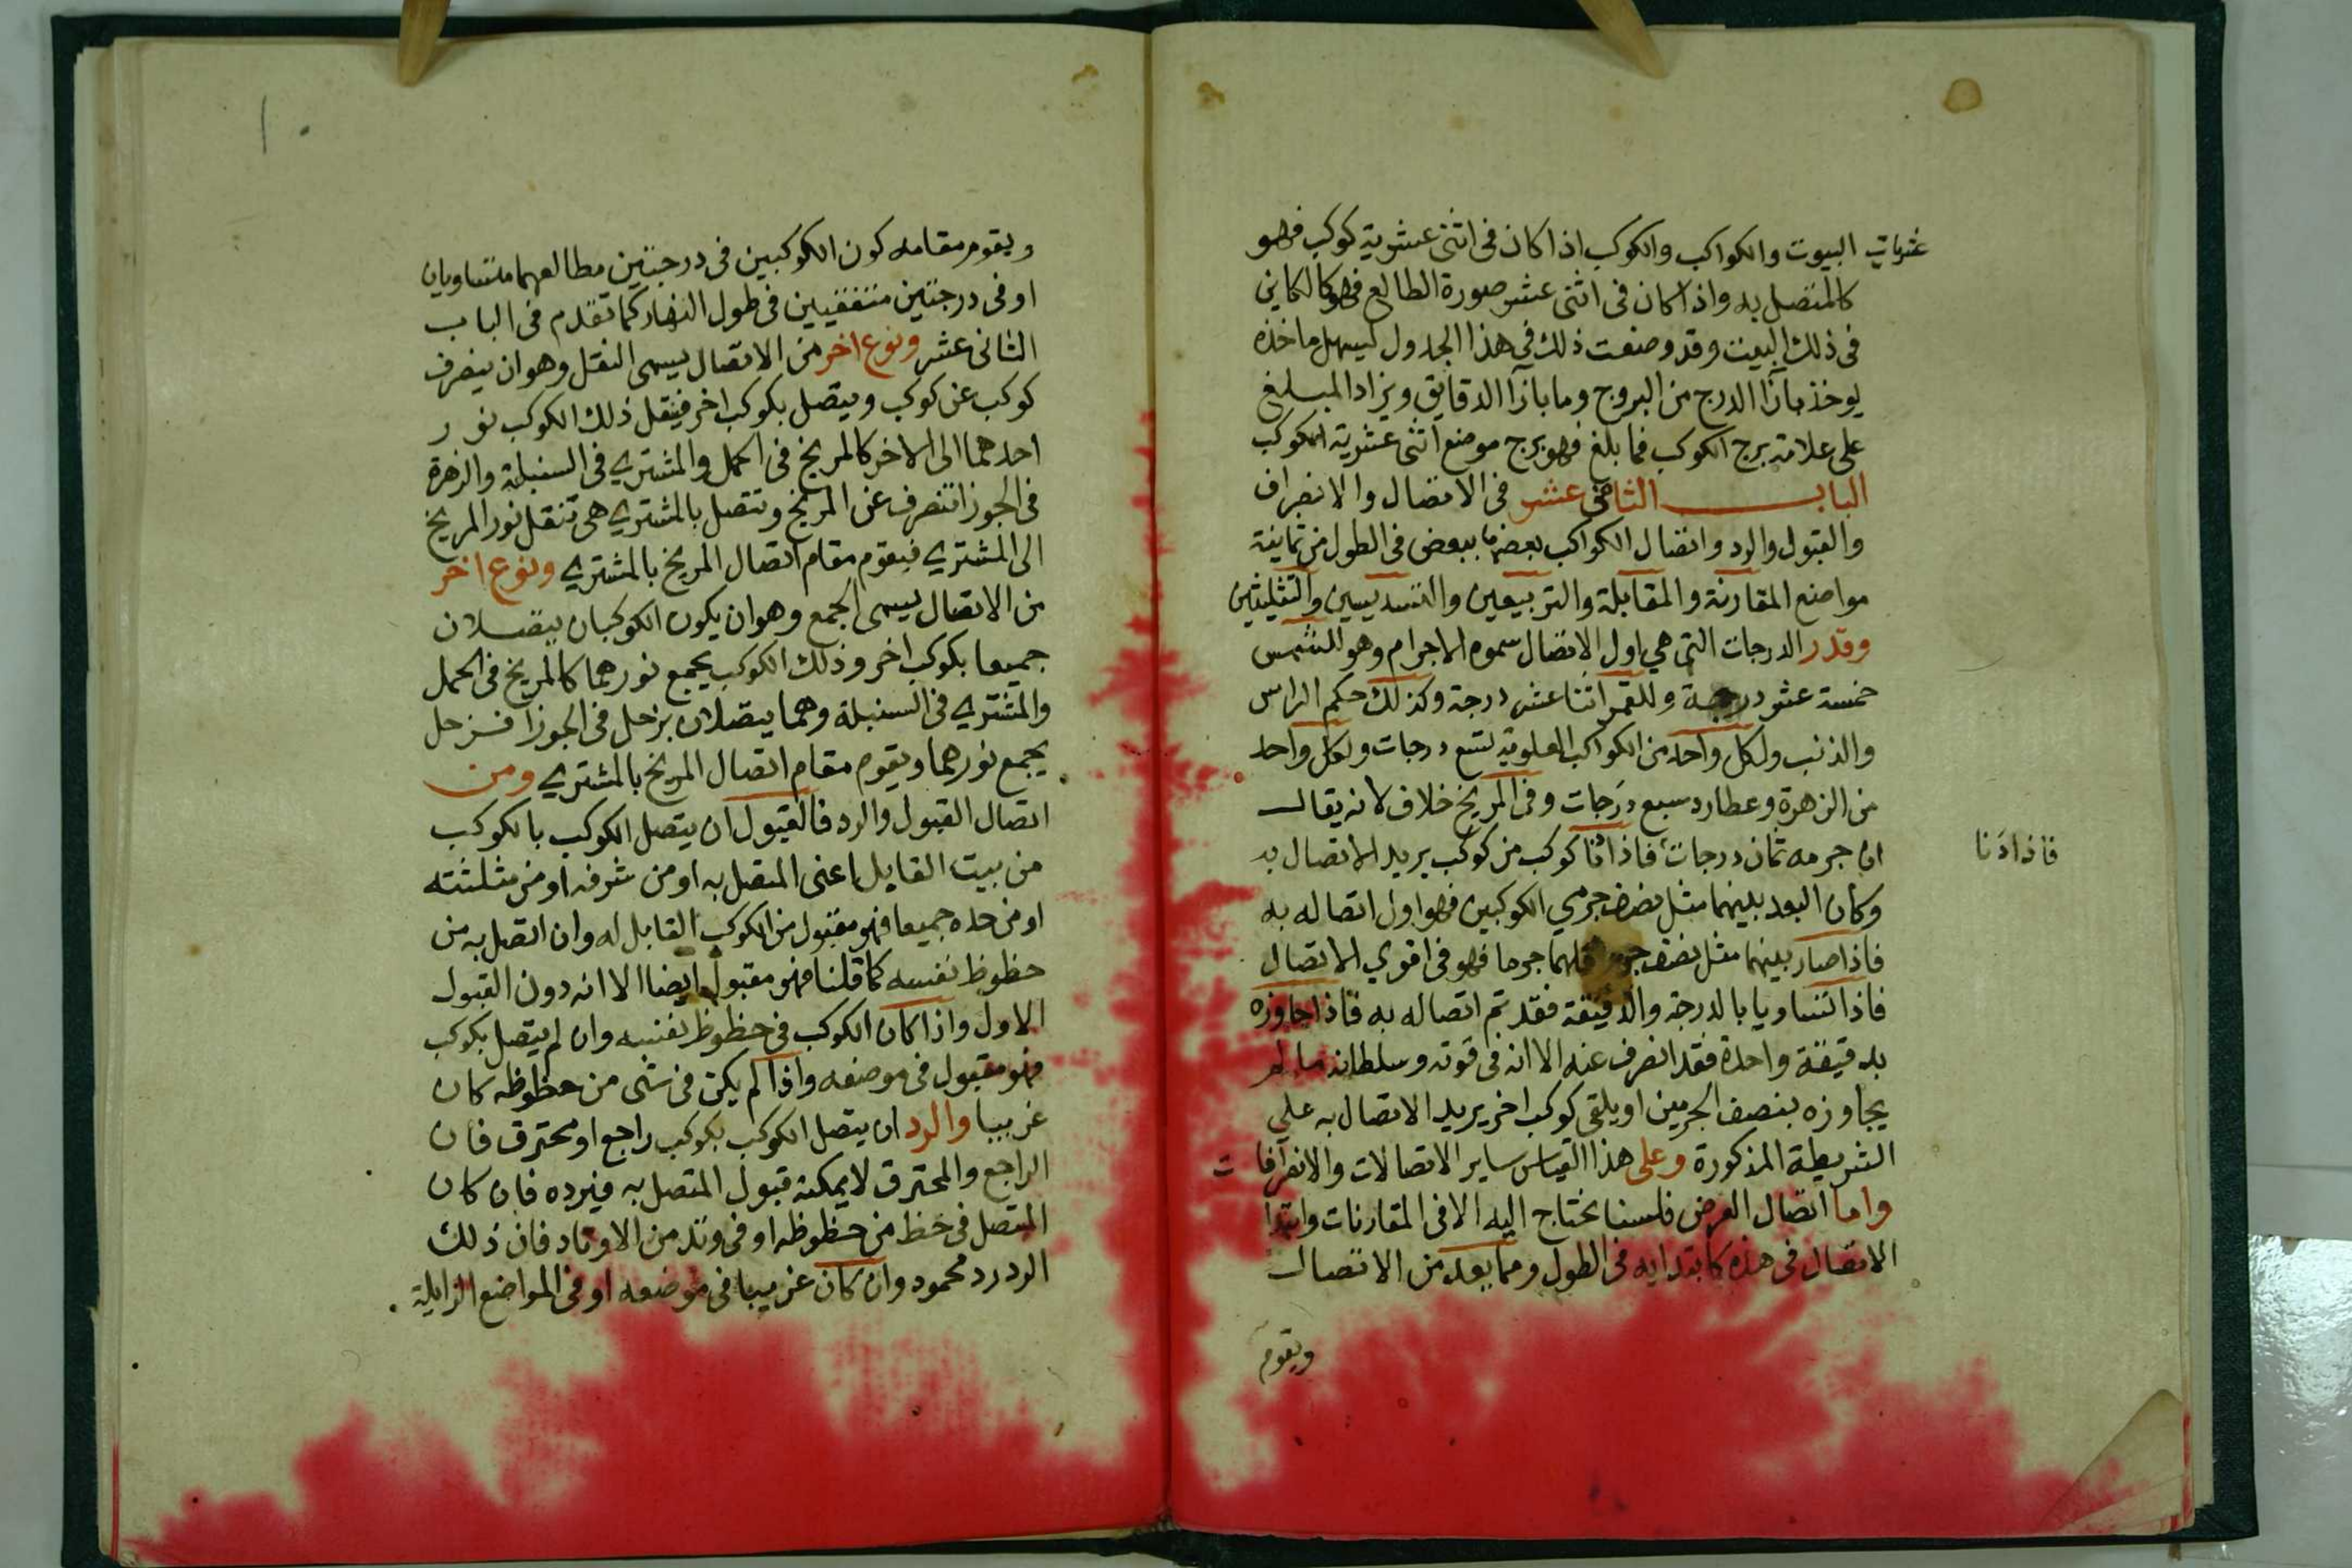 عشريات البيوت والكواكب والكوكب اذا كان فى اثنى عشرية كوكب فهو
كالمتصل به واذا كان فى اثنى عشر صورة الطالع فهو كالكاين
فى ذلك البيت وقد وضعت ذلك في هذا الجدول ليسهل ماخذه
يوخذ مازآ الدرج من البروج وما بازآ الدقايق ويزاد المبلغ
على علامة برج الكوكب فما بلغ فهو برج موضع اثنى عشرية الكوكب
الباب الثانى عشر فى الاتصال والانصراف
والقبول والرد واتصال الكواكب بعضها ببعض فى الطول من ثمانية
مواضع المقارنة والمقابلة والتربيعين والتسديسين والتثليثين
وقدر الدرجات التى هي اول الاتصال سموه الاجرام وهو للشمس
خمسة عشر درجة وللقمر اثنا عشر درجة وكذلك حكم الراس
والذنب ولكل واحد من الكواكب العلوية تسع درجات ولكل واحد
من الزهرة وعطارد سبع درجات وفى المريخ خلاف لانه يقال
ان جرمه ثمان درجات فاذا كوكب من كوكب يريد الاتصال به
فاذا دنا
وكان البعد بينهما مثل نصف جرمي الكوكبين فهو اول اتصاله به
فاذا صار بينهما مثل نصف جرم اقلهما جرما فهو فى اقوي الاتصال
فاذا تساويا بالدرجة والدقيقة فقد تم اتصاله به فاذا جاوزه
بدقيقة واحدة فقد انصرف عنه الا انه فى قوته وسلطانه ما لم
يجاوزه بنصف الجرمين او يلقى كوكب اخر يريد الاتصال به على
الشريطة المذكورة وعلى هذا القياس ساير الاتصالات والانصرافات
واما اتصال العرض فلسنا نحتاج اليه الا فى المقارنات وابتدآ
الاتصال فى هذه كابتدايه فى الطول ومما يعد من الاتصال
ويقوم
ويقوم مقامه كون الكوكبين فى درجتين مطالعهما متساويان
او فى درجتين متفقتين فى طول النهار كما تقدم فى الباب
الثانى عشر ونوع اخر من الاتصال يسمى النقل وهو ان ينصرف
كوكب عن كوكب ويتصل بكوكب اخر فينقل ذلك الكوكب نور
احدهما الى الاخر كالمريخ فى الحمل والمشتري فى السنبلة والزهرة
فى الجوزا تنصرف عن المريخ وتتصل بالمشتري هى تنقل نور المريخ
الى المشتري فيقوم مقام اتصال المريخ بالمشتري ونوع اخر
من الاتصال يسمى الجمع وهو ان يكون الكوكبان يتصلان
جميعا بكوكب اخر وذلك الكوكب يجمع نورهما كالمريخ فى الحمل
والمشتري فى السنبلة وهما يتصلان بزحل فى الجوزا فزحل
يجمع نورهما ويقوم مقام اتصال المريخ بالمشتري ومن
اتصال القبول والرد فالقبول ان يتصل الكوكب بالكوكب
من بيت القابل اعنى المتصل به او من شرفه او من مثلثته
او من حده جميعا فهو مقبول من الكوكب القابل له وان اتصل به من
حظوظ نفسه كما قلنا فهو مقبول ايضا الا انه دون القبول
الاول واذا كان الكوكب فى حظوظ نفسه وان لم يتصل بكوكب
فهو مقبول فى موضعه واذا لم يكن فى شى من حظوظه كان
غريبا والرد ان يتصل الكوكب بكوكب راجع او محترق فان
الراجع والمحترق لا يمكنه قبول المتصل به فيرده فان كان
المتصل فى حظ من حظوظه او فى وتد من الاوتاد فان ذلك
الرد رد محمود وان كان غريبا فى موضعه او فى المواضع الزايلة